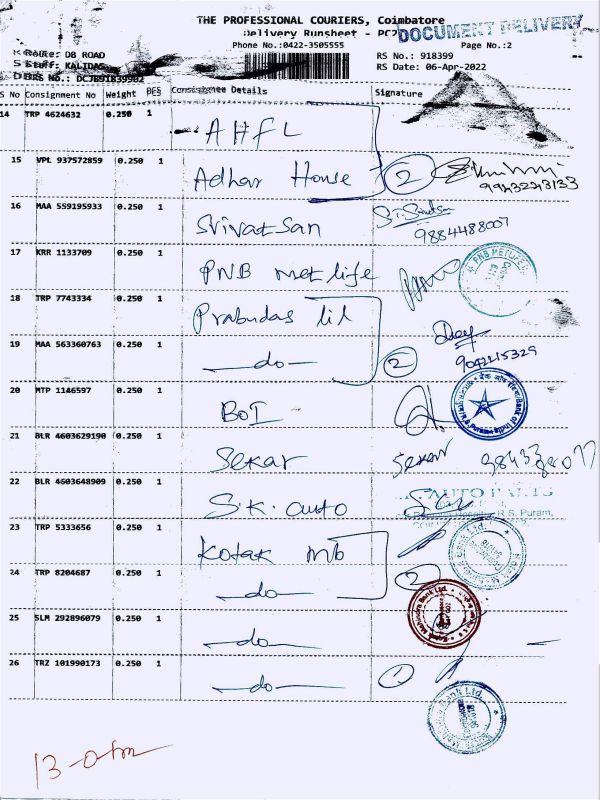 THE PROFESSIONAL COURIERS, Coimbatore
Delivery Runsheet - PC2
DOCUMENT DELIVERY
Phone No.:0422-3505555
Page No.:2
Route: DB ROAD
RS No.: 918399
Staff: KALIDAS
RS Date: 06-Apr-2022
DRS No.: DCJB91839902
S No Consignment No Weight PCS Consignee Details Signature
14 TRP 4624632 0.250 1 AHFL
15 VPL 937572859 0.250 1 Adhar House 2
16 MAA 559195933 0.250 1 Srivatsan
9884488007
17 KRR 1133709 0.250 1 PNB metlife
18 TRP 7743334 0.250 1 Prabudas lil
19 MAA 563360763 0.250 1 do 2
20 MTP 1146597 0.250 1 BOI
Bank of India
21 BLR 4603629190 0.250 1 Sekar Sekar
22 BLR 4603648909 0.250 1 S.K. auto
AUTO PARTS
R.S. Puram,
23 TRP 5333656 0.250 1 Kotak mb
24 TRP 8204687 0.250 1 do 2
Kotak Mahindra Bank Ltd.
25 SLM 292896079 0.250 1 do
26 TRZ 101990173 0.250 1 do 1
Bank Ltd.